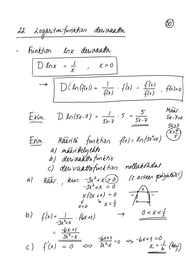 2.2 Logaritmifunktion derivaatta
Funktion lnx derivaatta
D lnx = 1/x , x>0
⇒ D(ln(f(x))) = 1/f(x) · f'(x) = f'(x)/f(x) , f(x)>0
Esim. D ln(5x-7) = 1/(5x-7) · 5 = 5/(5x-7)
Määr.
5x-7>0
Esim. Määritä funktion f(x) = ln(-3x²+x)
a) määrittelyehto
b) derivaattafunktio
c) derivaattafunktion nollakohdat
a) Määr., kun -3x²+x > 0
-3x²+x = 0
x(-3x+1) = 0
0 < x < 1/3
b) f'(x) = 1/(-3x²+x) · (-6x+1)
= (-6x+1)/(-3x²+x)
c) f'(x) = 0 ⇔ (-6x+1)/(-3x²+x) = 0 → -6x+1 = 0
x = 1/6